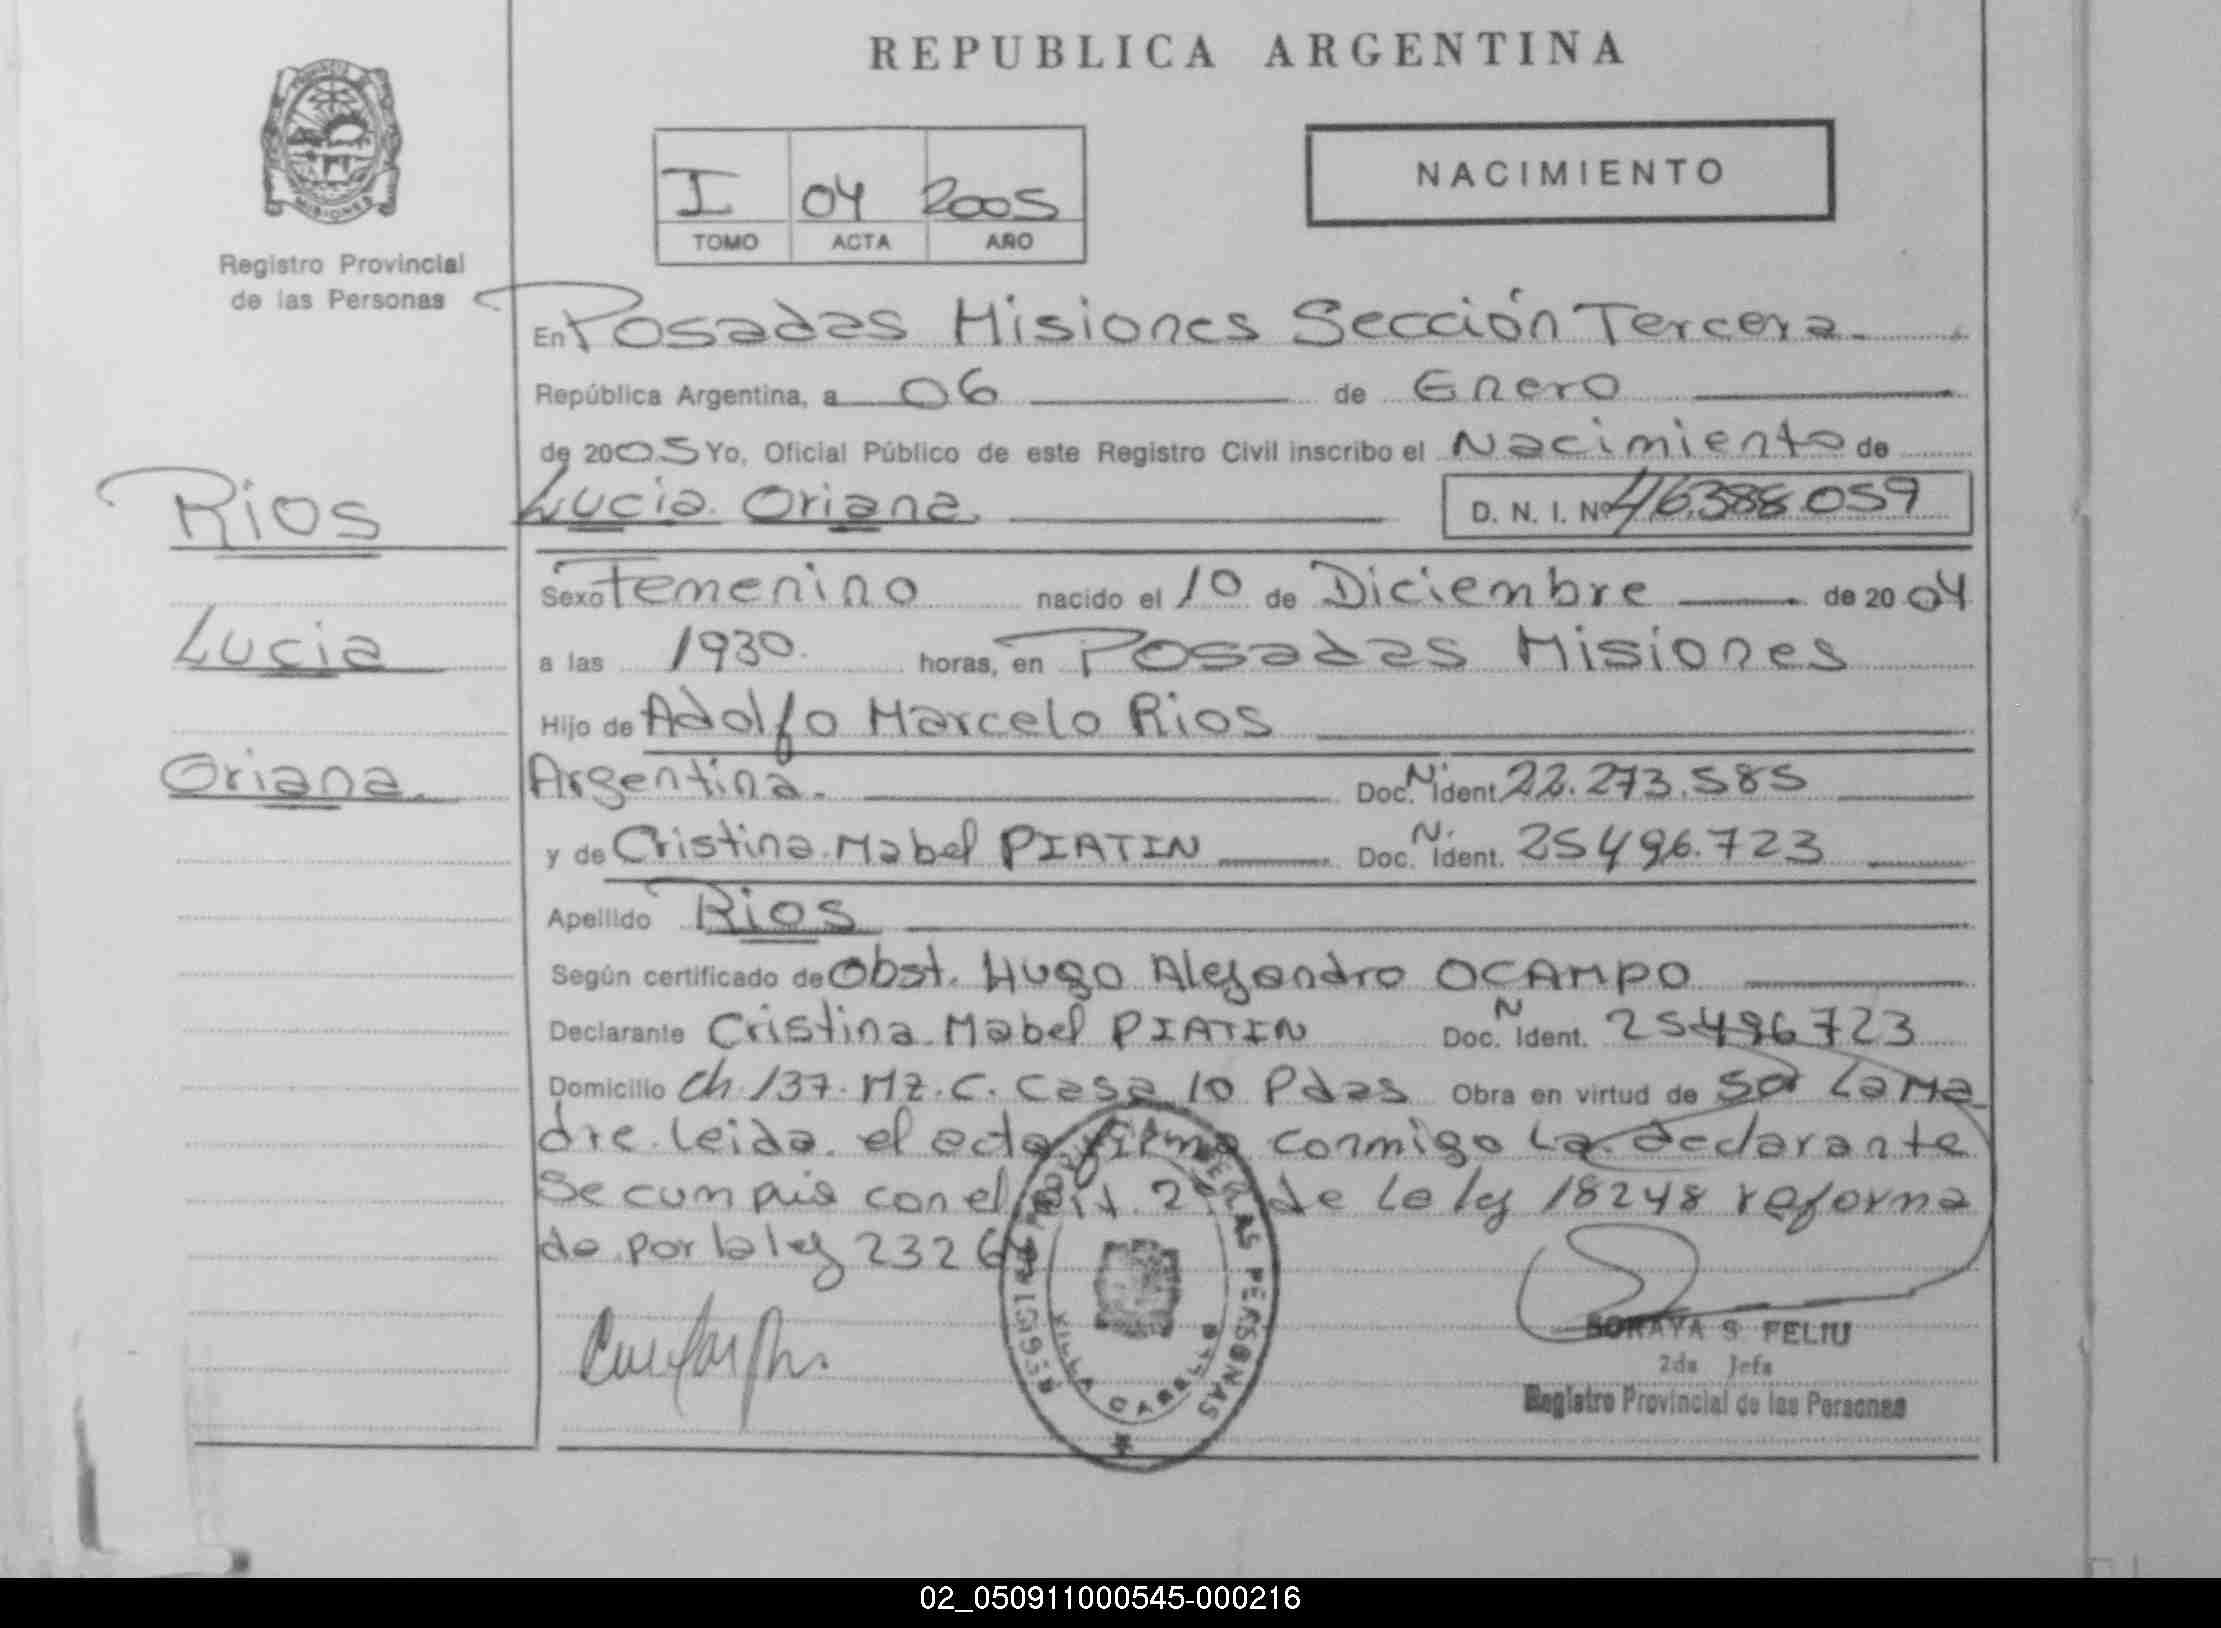 REPUBLICA ARGENTINA
PROVINCIA DE
MISIONES
Registro Provincial
de las Personas
I 04 2005
TOMO ACTA AÑO
NACIMIENTO
En Posadas Misiones Sección Tercera
República Argentina, a 06 de Enero
de 2005 Yo, Oficial Público de este Registro Civil inscribo el Nacimiento de
Rios
Lucia Oriana D. N. I. Nº 46.388.059
Sexo Femenino nacido el 10 de Diciembre de 2004
Lucia
a las 1930 horas, en Posadas Misiones
Hijo de Adolfo Marcelo Rios
Oriana
Argentina. Doc. N. Ident. 22.273.585
y de Cristina Mabel PIATIN Doc. N. Ident. 25496.723
Apellido Rios
Según certificado de Obst. Hugo Alejandro OCAMPO
Declarante Cristina Mabel PIATIN Doc. N Ident. 25496723
Domicilio Ch. 137. Mz. C. Casa 10 Pdas Obra en virtud de ser La Ma
dre leida el acta firma conmigo La declarante
Se cumplió con el Art. 2º de la ley 18248 reforma
da por la ley 2326
REGISTRO PROVINCIAL DE LAS PERSONAS
VILLA CABELLO
SORAYA S FELIU
2da Jefa
Registro Provincial de las Personas
02_050911000545-000216